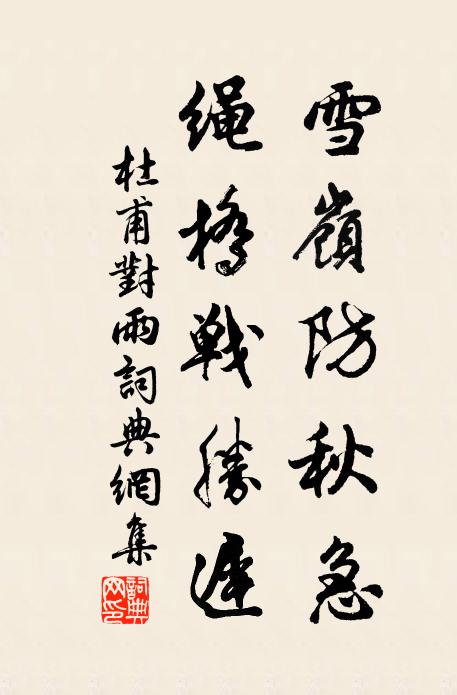 雪嶺防秋急
繩橋戰勝遲
杜甫對雨詞典網集
詞典網印